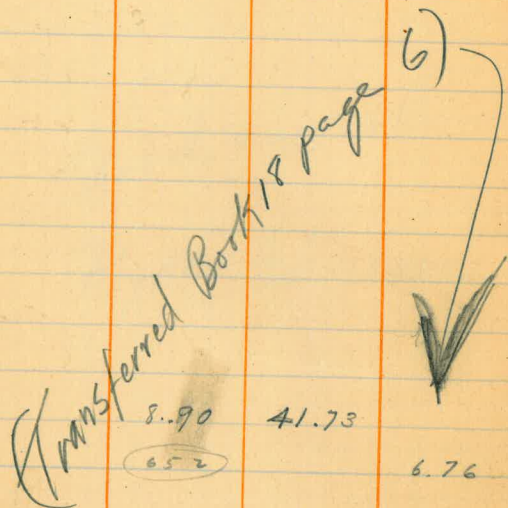 (Transferred Book 18 page 6)
8.90 41.73
652 6.76